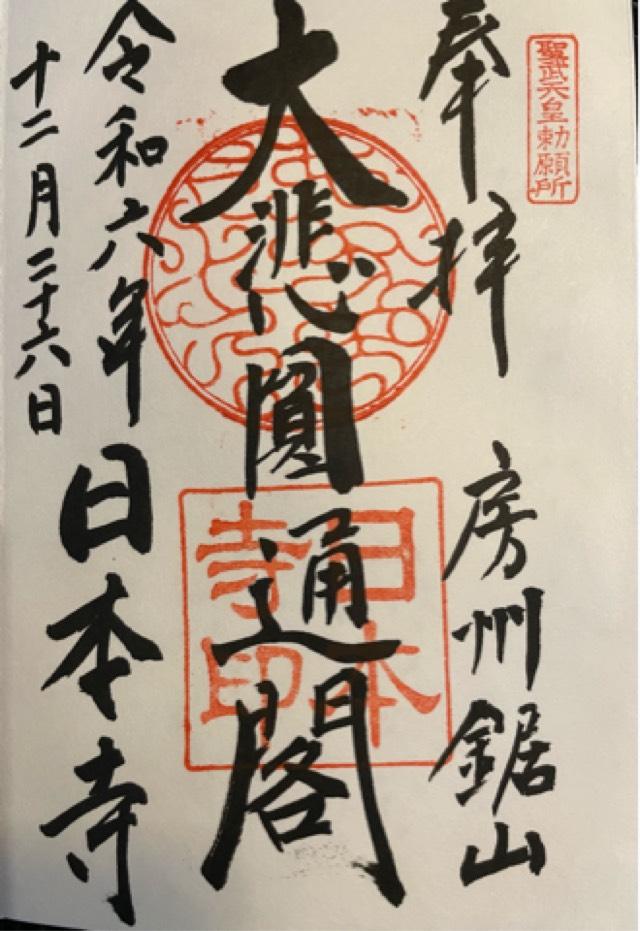 聖武天皇勅願所
奉拝
房州鋸山
大悲圓通閣
日本
寺印
令和六年
日本寺
十二月二十六日